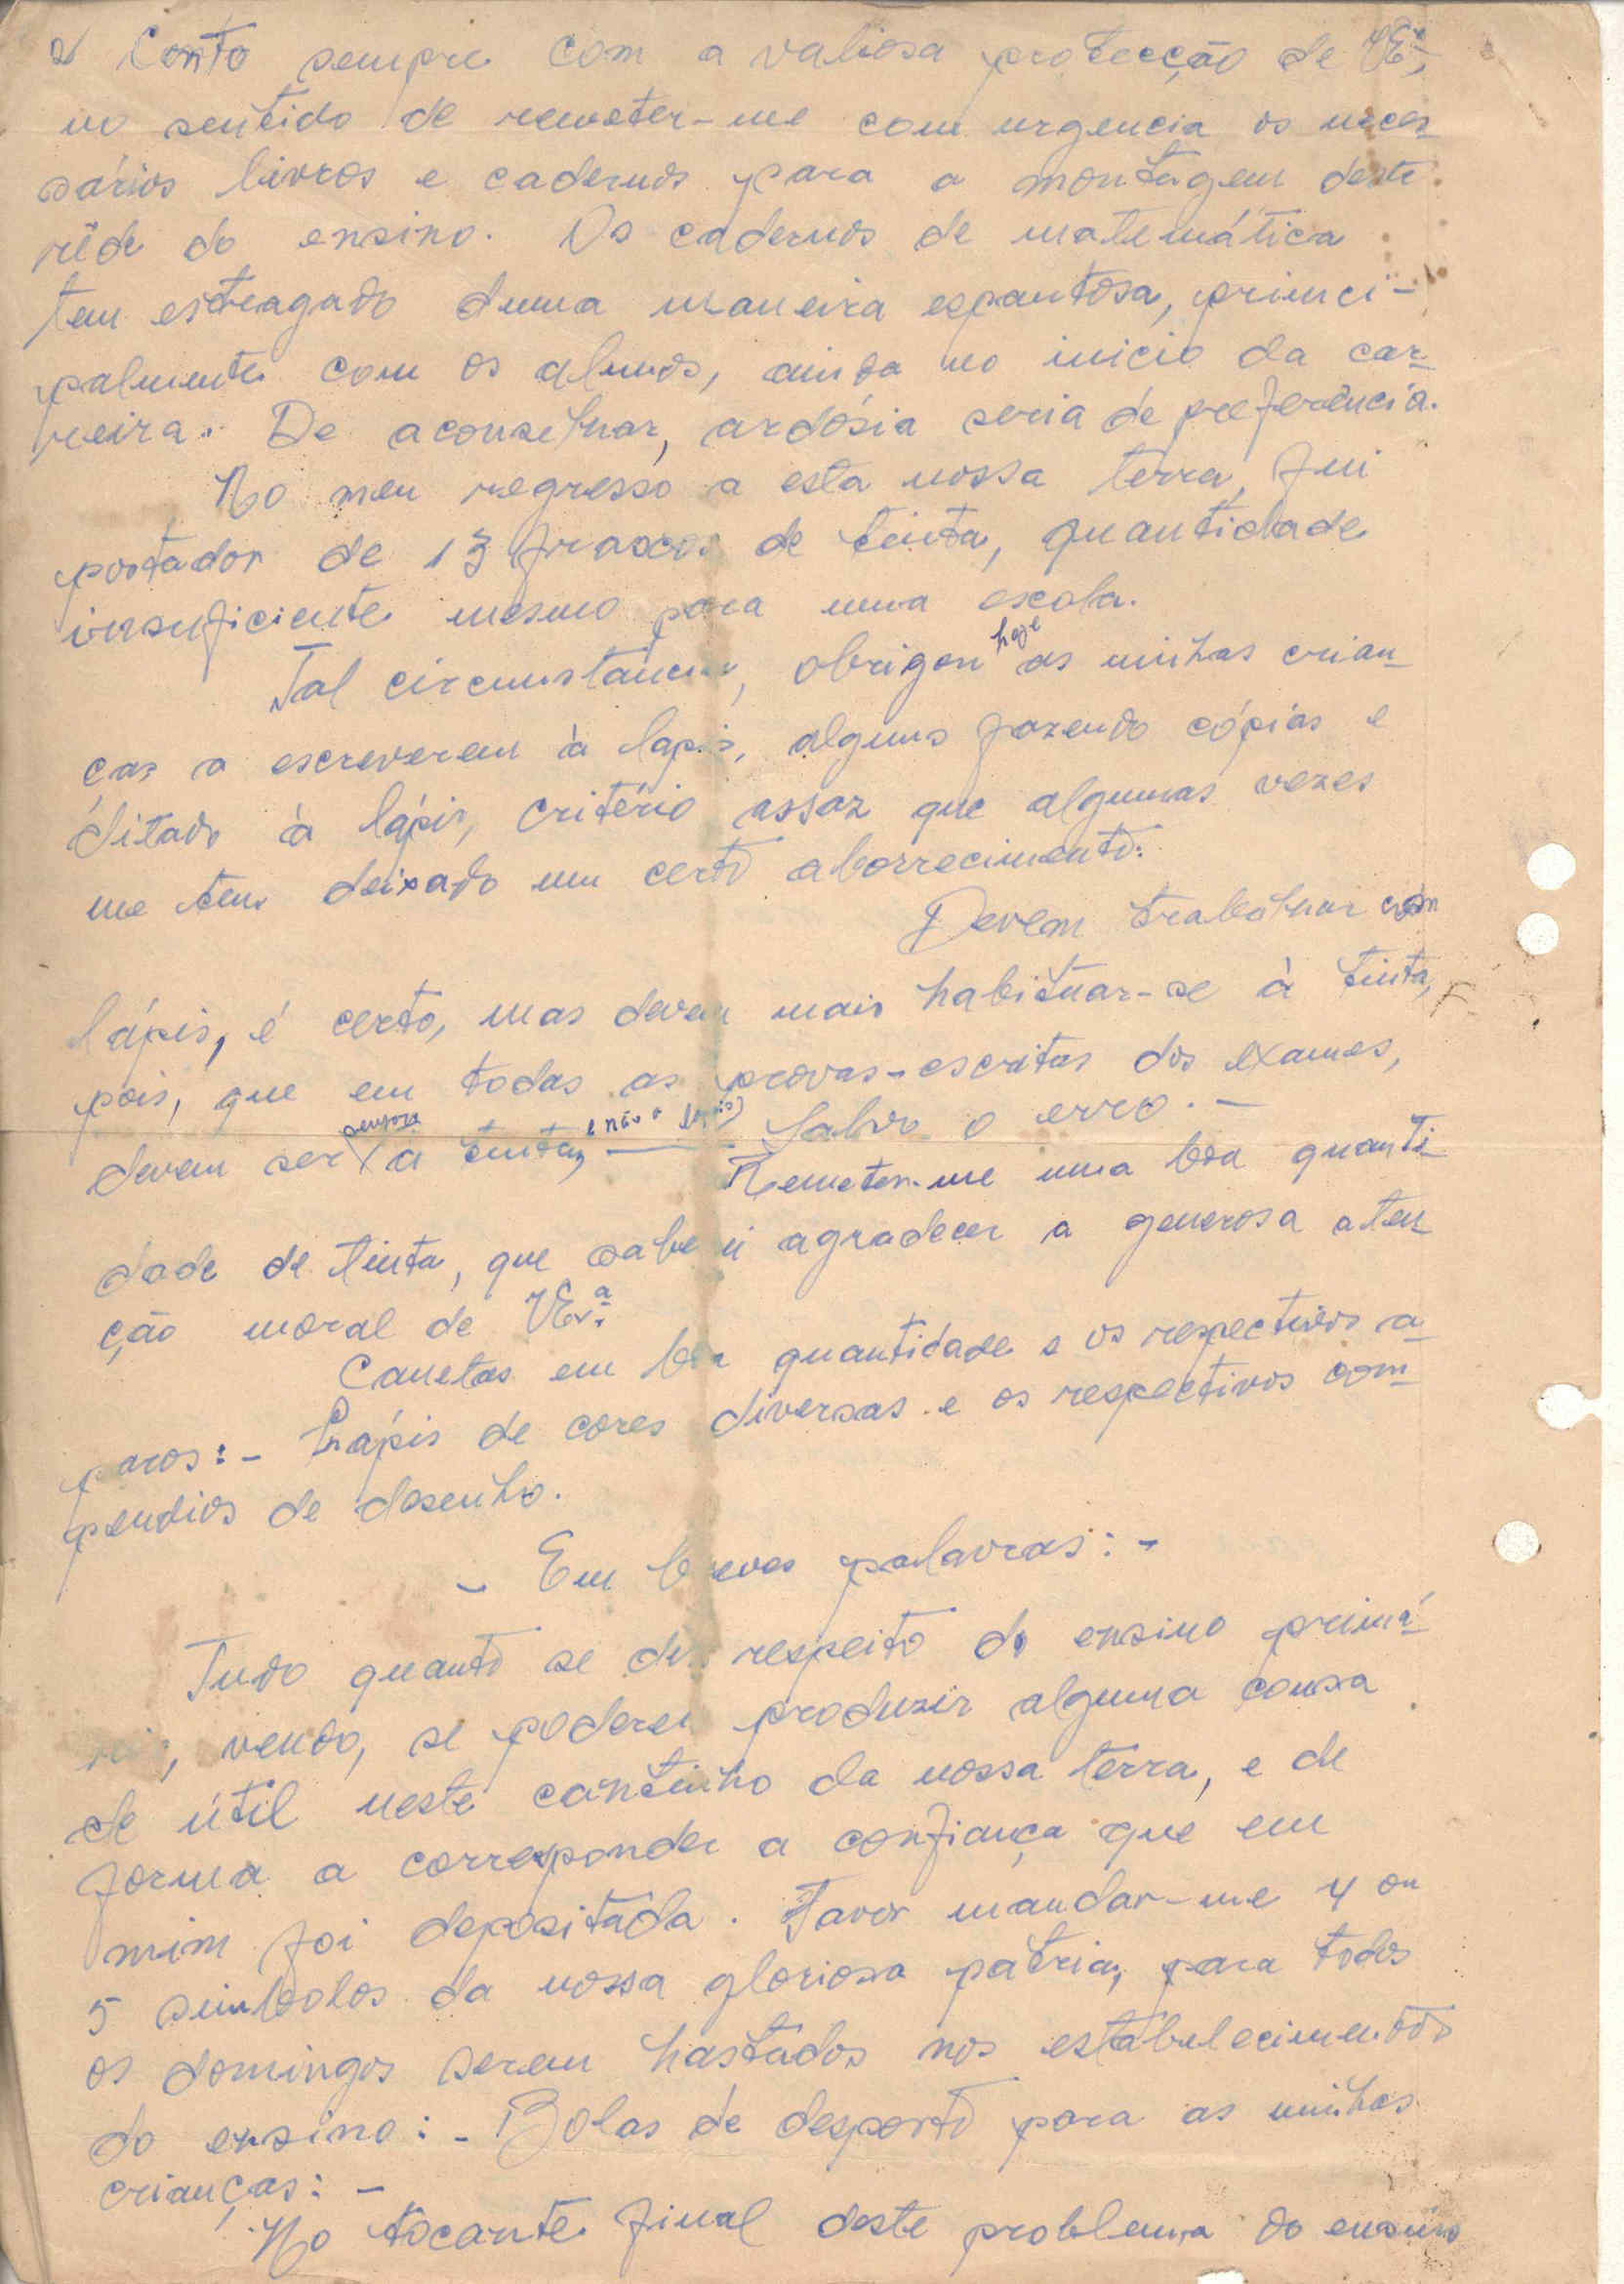 2 Conto sempre com a valiosa protecção de VEª,
no sentido de remeter-me com urgencia os neces
sários livros e cadernos para a montagem deste
rêde do ensino. Os cadernos de matemática
tem estragado duma maneira espantosa, princi-
palmente com os alunos, ainda no inicio da car-
reira. De aconselhar, ardósia seria de preferência.
No meu regresso a esta nossa terra, fui
portador de 13 frascos de tinta, quantidade
insuficiente mesmo para uma escola.
Tal circunstância, obrigou hoje as minhas crian
ças a escreverem à lapis, alguns fazendo cópias e
ditado à lápis, critério assaz que algumas vezes
me tem deixado um certo aborrecimento.
Devem trabalhar com
lápis, é certo, mas devem mais habituar-se à tinta,
pois, que em todas as provas-escritas dos exames,
devem ser sempre a tinta, (não a lapis) Salvo o erro. -
Remeter-me uma boa quanti
dade de tinta, que saberei agradecer a generosa aten
ção moral de VExª.
Canetas em boa quantidade e os respectivos a-
paros: - Lápis de cores diversas e os respectivos com-
pendios de desenho.
- Em breves palavras: -
Tudo quanto se diz respeito do ensino primá-
rio, vendo, se poderei produzir alguma cousa
de útil neste cantinho da nossa terra, e de
forma a corresponder a confiança que em
mim foi depositada. Favor mandar-me 4 ou
5 simbolos da nossa gloriosa patria, para todos
os domingos serem hastados nos estabelecimentos
do ensino: - Bolas de desporto para as minhas
crianças: -
No tocante final deste problema do ensino